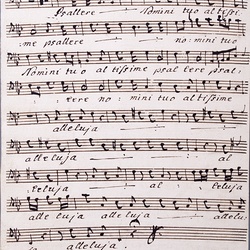 Psallere Nomini tuo altissi
me psallere no=mini tuo
Nomini tuo altissime psallere psal:
lere no=mini tuo altissime
alleluja
alleluja al
leluja al
alleluja alleluja allelu:
alleluja.